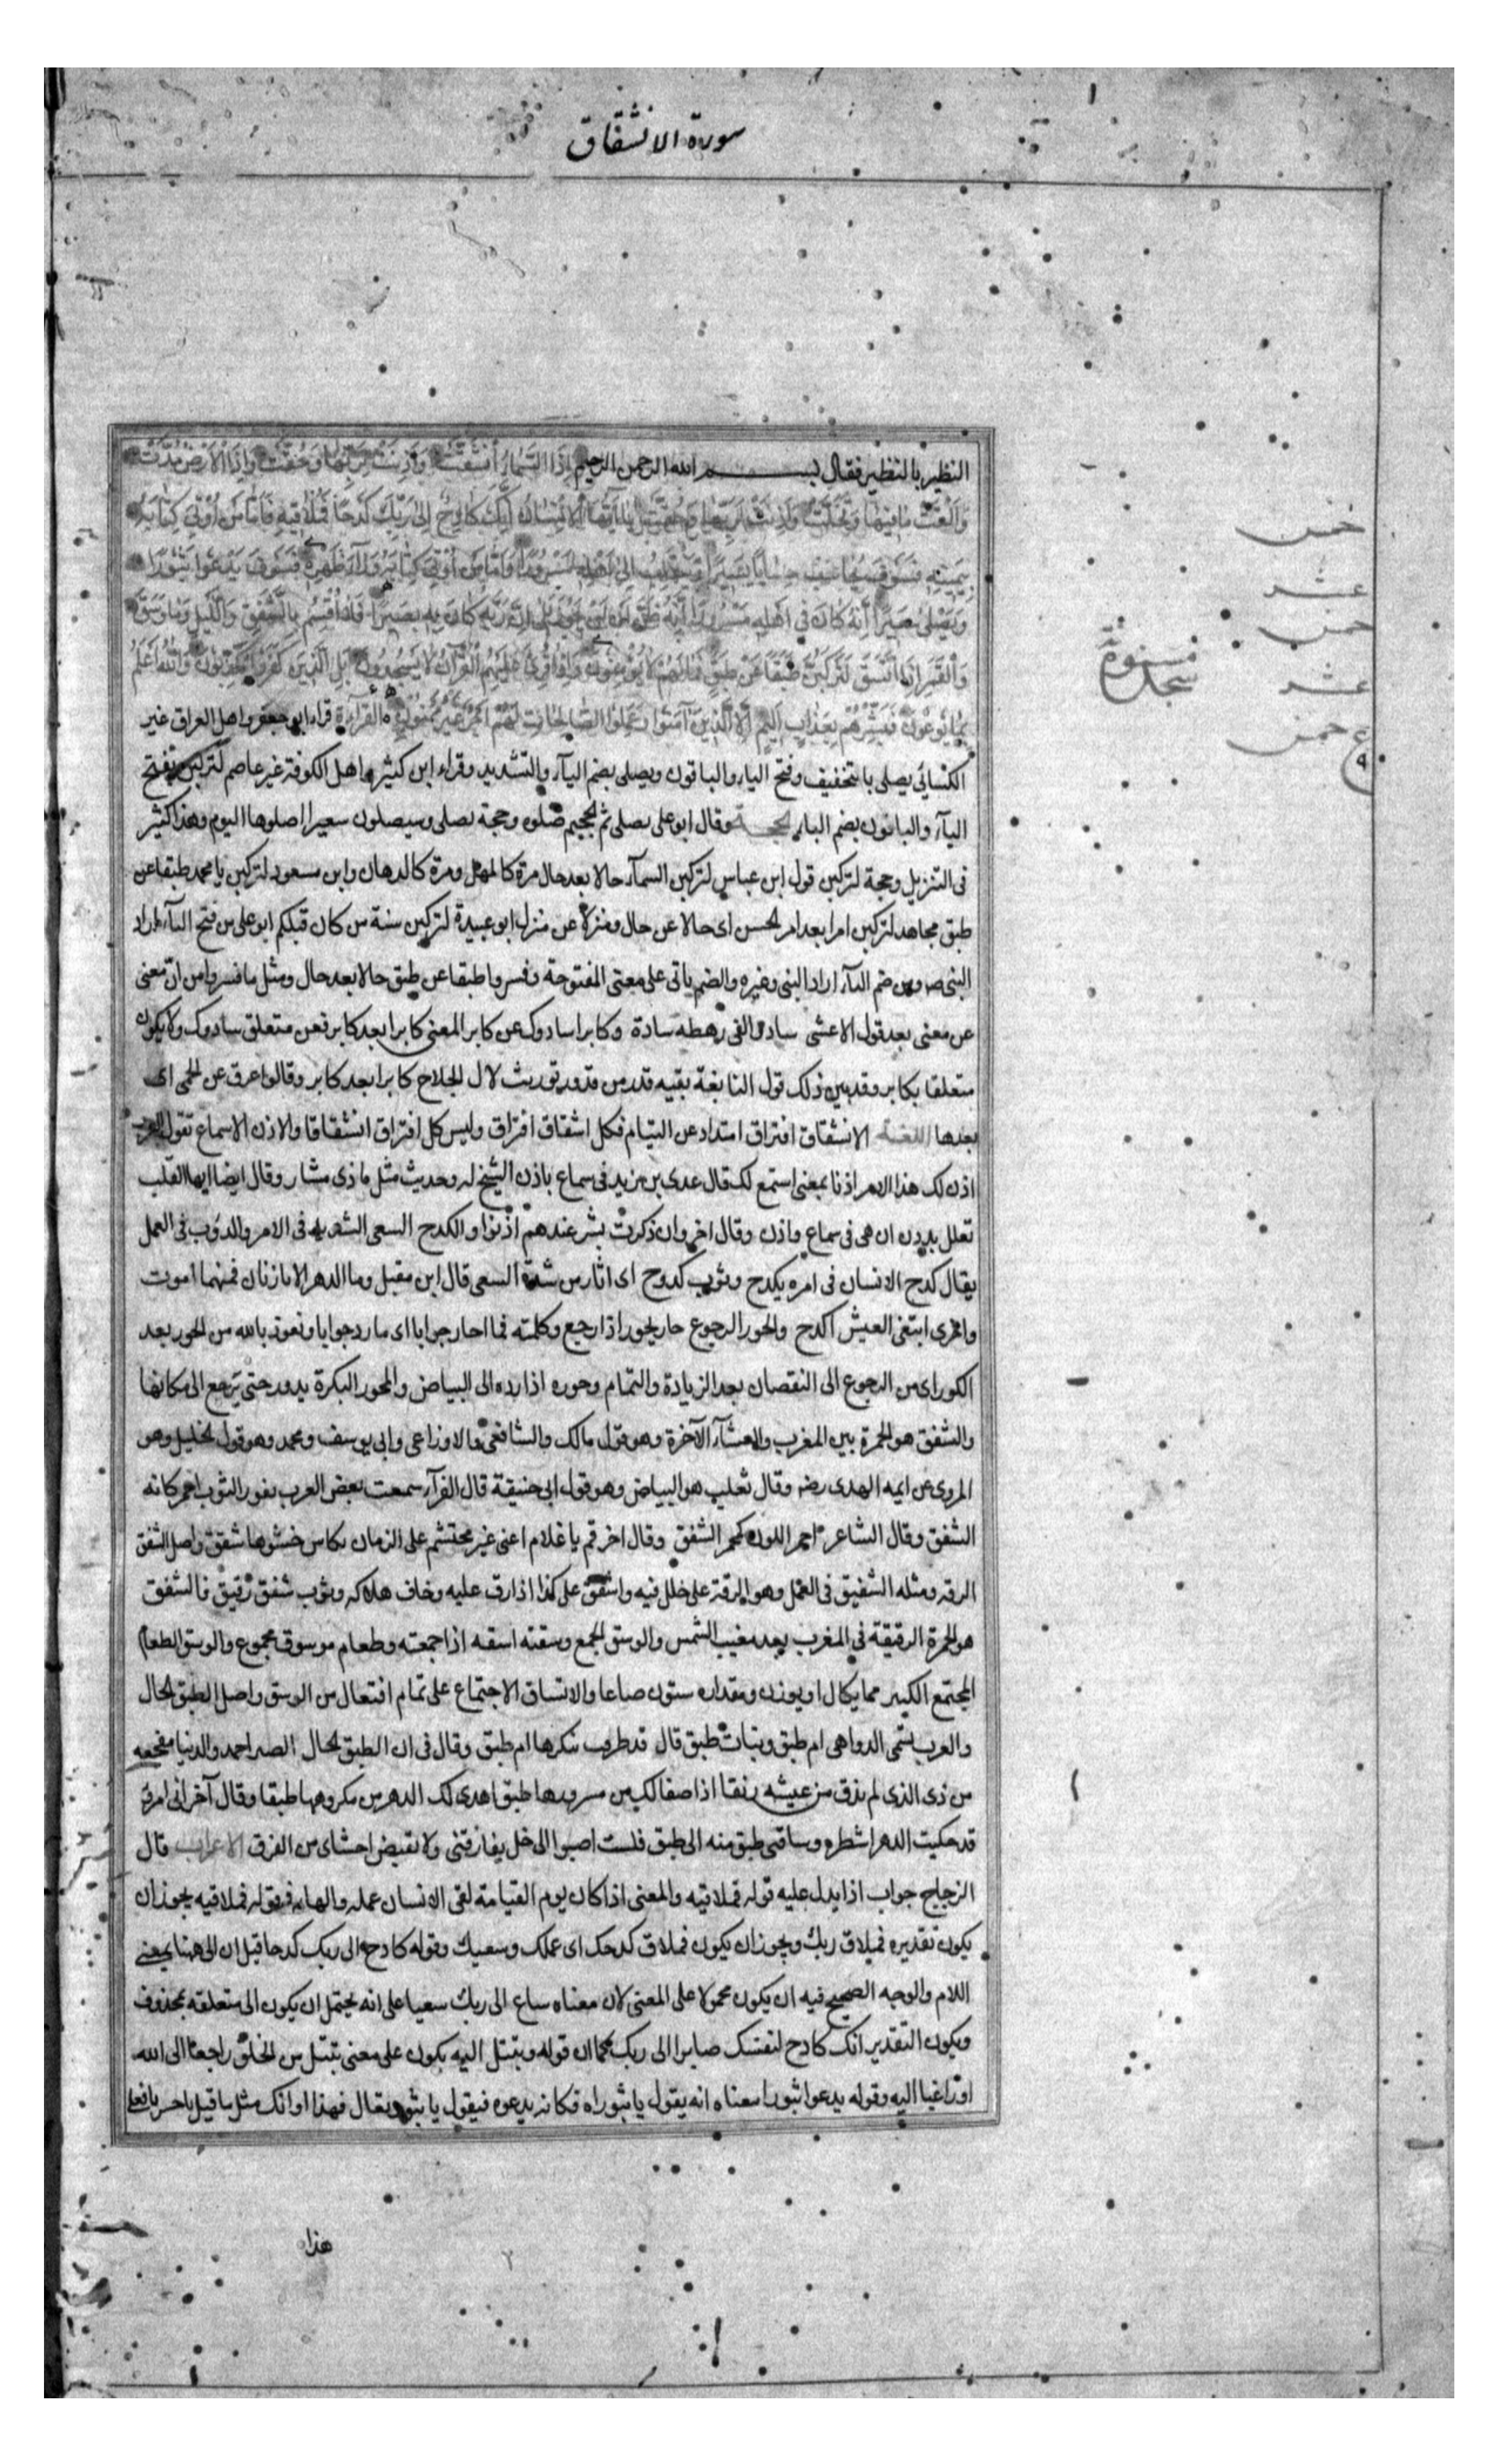 سورة الانشقاق
النظير بالنظير فقال بسم الله الرحمن الرحيم إِذَا السَّمَاءُ انْشَقَّتْ وَأَذِنَتْ لِرَبِّهَا وَحُقَّتْ وَإِذَا الْأَرْضُ مُدَّتْ
وَأَلْقَتْ مَا فِيهَا وَتَخَلَّتْ وَأَذِنَتْ لِرَبِّهَا وَحُقَّتْ يَا أَيُّهَا الْإِنْسَانُ إِنَّكَ كَادِحٌ إِلَى رَبِّكَ كَدْحًا فَمُلَاقِيهِ فَأَمَّا مَنْ أُوتِيَ كِتَابَهُ
بِيَمِينِهِ فَسَوْفَ يُحَاسَبُ حِسَابًا يَسِيرًا وَيَنْقَلِبُ إِلَى أَهْلِهِ مَسْرُورًا وَأَمَّا مَنْ أُوتِيَ كِتَابَهُ وَرَاءَ ظَهْرِهِ فَسَوْفَ يَدْعُوا ثُبُورًا
وَيَصْلَى سَعِيرًا إِنَّهُ كَانَ فِي أَهْلِهِ مَسْرُورًا إِنَّهُ ظَنَّ أَنْ لَنْ يَحُورَ بَلَى إِنَّ رَبَّهُ كَانَ بِهِ بَصِيرًا فَلَا أُقْسِمُ بِالشَّفَقِ وَاللَّيْلِ وَمَا وَسَقَ
وَالْقَمَرِ إِذَا اتَّسَقَ لَتَرْكَبُنَّ طَبَقًا عَنْ طَبَقٍ فَمَا لَهُمْ لَا يُؤْمِنُونَ وَإِذَا قُرِئَ عَلَيْهِمُ الْقُرْآنُ لَا يَسْجُدُونَ بَلِ الَّذِينَ كَفَرُوا يُكَذِّبُونَ وَاللَّهُ أَعْلَمُ
بِمَا يُوعُونَ فَبَشِّرْهُمْ بِعَذَابٍ أَلِيمٍ إِلَّا الَّذِينَ آمَنُوا وَعَمِلُوا الصَّالِحَاتِ لَهُمْ أَجْرٌ غَيْرُ مَمْنُونٍ القراءة قراء ابو جعفر واهل العراق غير
الكسائي يصلى بالتخفيف وفتح الياء والباقون ويصلى بضم اليآء والتشديد وقراء ابن كثير واهل الكوفة غير عاصم لتركبن بفتح
اليآء والباقون بضم الباء الحجة وقال ابو على يصلى ثم الجحيم صلوه وحجة يصلى وسيصلون سعيرا اصلوها اليوم وهذا كثير
فى التنزيل وحجة لتركبن قول ابن عباس لتركبن السمآء حالا بعد حال مرة كالمهل ومرة كالدهان وابن مسعود لتركبن يا محمد طبقا عن
طبق مجاهد لتركبن امرا بعد امر الحسن اى حالا عن حال ومنزلا عن منزل ابو عبيدة لتركبن سنة من كان قبلكم ابو على من فتح البآء اراد
النبى ص ومن ضم البآء اراد النبى وغيره والضم ياتى على معنى المفتوحة وفسروا طبقا عن طبق حالا بعد حال ومثل ما فسروا من ان معنى
عن معنى بعد قول الاعشى سادوالفى رهطه سادة وكابرا سادوك عن كابر المعنى كابرا بعد كابر فعن متعلق سادوك ولا يكون
متعلقا بكابر وقد بين ذلك قول النابغة بقيه قدر من قدور توريث لال الجلاح كابرا بعد كابر وقالوا عرق عن الحمى اى
بعدها اللغة الانشقاق افتراق امتداد عن التيام فكل اشقاق افتراق وليس كل افتراق انشقاقا والاذن الاسماع تقول العرب
اذن لك هذا الامر اذنا بمعنى استمع لك قال عدى بن زيد فى سماع ياذن الشيخ له وحديث مثل ماذى مشار وقال ايضا ايها القلب
تعلل بددن ان همى فى سماع واذن وقال اخر وان ذكرت بشر عندهم اذنوا والكدح السعى الشديد فى الامر والدؤب فى العمل
يقال كدح الانسان فى امره يكدح وثوب كدوح اى اثار من شدة السعى قال ابن مقبل وما الدهر الا مازتان فمنهما اموت
واخرى ابتغى العيش اكدح والحور الرجوع حار يحور اذا رجع وكلمته فما احار جوابا اى ما رد جوابا ونعوذ بالله من الحور بعد
الكور اى من الرجوع الى النقصان بعد الزيادة والتمام وحوره اذا رده الى البياض والمحور البكرة يدور حتى يرجع الى مكانها
والشفق هو الحمرة بين المغرب والعشآء الآخرة وهو قول مالك والشافعى والاوزاعى وابى يوسف ومحمد وهو قول الخليل وهو
المروى عن ايمه الهدى رضه وقال ثعلب هو البياض وهو قول ابى حنيفة قال الفرآء سمعت بعض العرب يقول الثوب احمر كانه
الشفق وقال الشاعر احمر اللون كحمر الشفق وقال اخر قم يا غلام اعنى غير محتشم على الزمان بكاس حشوها شفق واصل الشفق
الرقه ومثله الشفيق فى العمل وهو الرقة على خلل فيه واشفق على كذا اذا رق عليه وخاف هلاكه وثوب شفق رقيق فالشفق
هو الحمرة الرقيقة فى المغرب بعد مغيب الشمس والوسق الجمع وسقته اسقه اذا جمعته وطعام موسوق مجموع والوسق الطعام
المجتمع الكبير مما يكال او يوزن ومقداره ستون صاعا والاتساق الاجتماع على تمام افتعال من الوسق واصل الطبق الحال
والعرب تسمى الدواهى ام طبق وبنات طبق قال قد طرقت ببكرها ام طبق وقال فى ان الطبق الحال الصبر احمد والدنيا مفجعه
من ذى الذى لم يذق من عيشه رنقا اذا صفا لك من مسرورها طبق اهدى لك الدهر من مكروهها طبقا وقال آخر انى امرؤ
قد حكيت الدهر اشطره وساقنى طبق منه الى طبق فلست اصبوا الى خل يفارقنى ولا تقبض احشاى من الفرق الاعراب قال
الزجاج جواب اذا يدل عليه قوله فملاقيه والمعنى اذا كان يوم القيامة لقى الانسان عمله والهاء فى قوله فملاقيه يجوز ان
يكون تقديره فملاق ربك ويجوز ان يكون فملاق كدحك اى عملك وسعيك وقوله كادح الى ربك كدحا قيل ان الى ههنا بمعنى
اللام والوجه الصحيح فيه ان يكون محمولا على المعنى لان معناه ساع الى ربك سعيا على انه يحتمل ان يكون الى متعلقه بمحذوف
ويكون التقدير انك كادح لنفسك صابرا الى ربك كما ان قوله وتبتل اليه يكون على معنى تبتل من الخلق راجعا الى الله
او راغبا اليه وقوله يدعوا ثبورا معناه انه يقول يا ثبوراه فكانه يدعوه فيقول يا ثبور تعال فهذا اوانك مثل ما قيل يا حسرتا
هذا
خمس
عشر
خمس
عشر
سجدة
ع خمس
٩